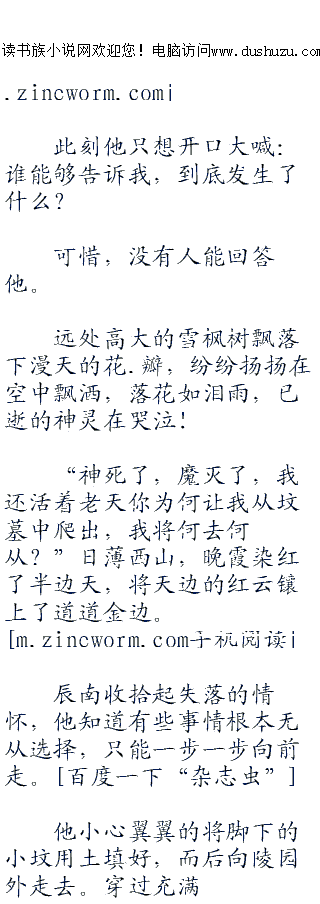 读书族小说网欢迎您！电脑访问www.dushuzu.com
.zincworm.com|
此刻他只想开口大喊：
谁能够告诉我，到底发生了
什么？
可惜，没有人能回答
他。
远处高大的雪枫树飘落
下漫天的花.瓣，纷纷扬扬在
空中飘洒，落花如泪雨，已
逝的神灵在哭泣！
“神死了，魔灭了，我
还活着老天你为何让我从坟
墓中爬出，我将何去何
从？”日薄西山，晚霞染红
了半边天，将天边的红云镶
上了道道金边。
[m.zincworm.com手机阅读|
辰南收拾起失落的情
怀，他知道有些事情根本无
从选择，只能一步一步向前
走。[百度一下“杂志虫”]
他小心翼翼的将脚下的
小坟用土填好，而后向陵园
外走去。穿过充满